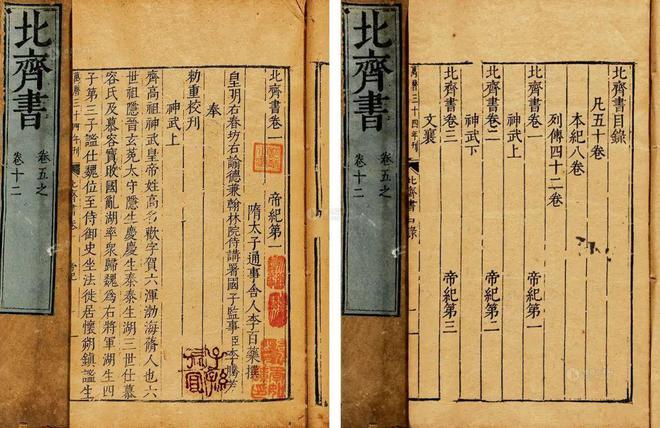 北齊書
卷五之
卷十二
北齊書卷一 帝紀第一
隋太子通事舍人李百藥撰
皇明右春坊右諭德兼翰林院侍講署國子監事臣李騰芳
奉
勅重校刊
神武上
齊高祖神武皇帝姓高名歡字賀六渾渤海蓨人也六
世祖隱晉玄菟太守隱生慶慶生泰泰生湖三世仕慕
容氏及慕容寶敗國亂湖率衆歸魏為右將軍湖生四
子第三子謐仕魏位至侍御史坐法徙居懷朔鎮謐生
萬曆三十四年刊 北齊書卷
北齊書
卷五之
卷十二
北齊書目錄
凡五十卷
本紀八卷
列傳四十二卷
北齊書卷一 帝紀第一
神武上
北齊書卷二 帝紀第二
神武下
北齊書卷三 帝紀第三
文襄
萬曆三十四年刊 北齊書目錄